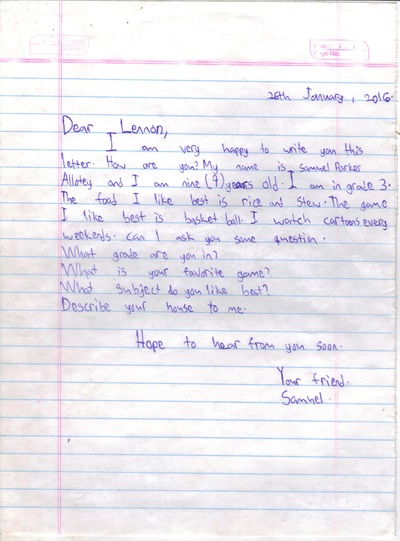 26th January, 2016.
Dear Lennon,
I am very happy to write you this
letter. How are you? My name is Samuel Parker
Allotey and I am nine (9) years old. I am in grade 3.
The food I like best is rice and stew. The game
I like best is basket ball. I watch cartoons every
weekends. Can I ask you some question.
What grade are you in?
What is your favorite game?
What subject do you like best?
Describe your house to me.
Hope to hear from you soon.
Your friend.
Samuel.